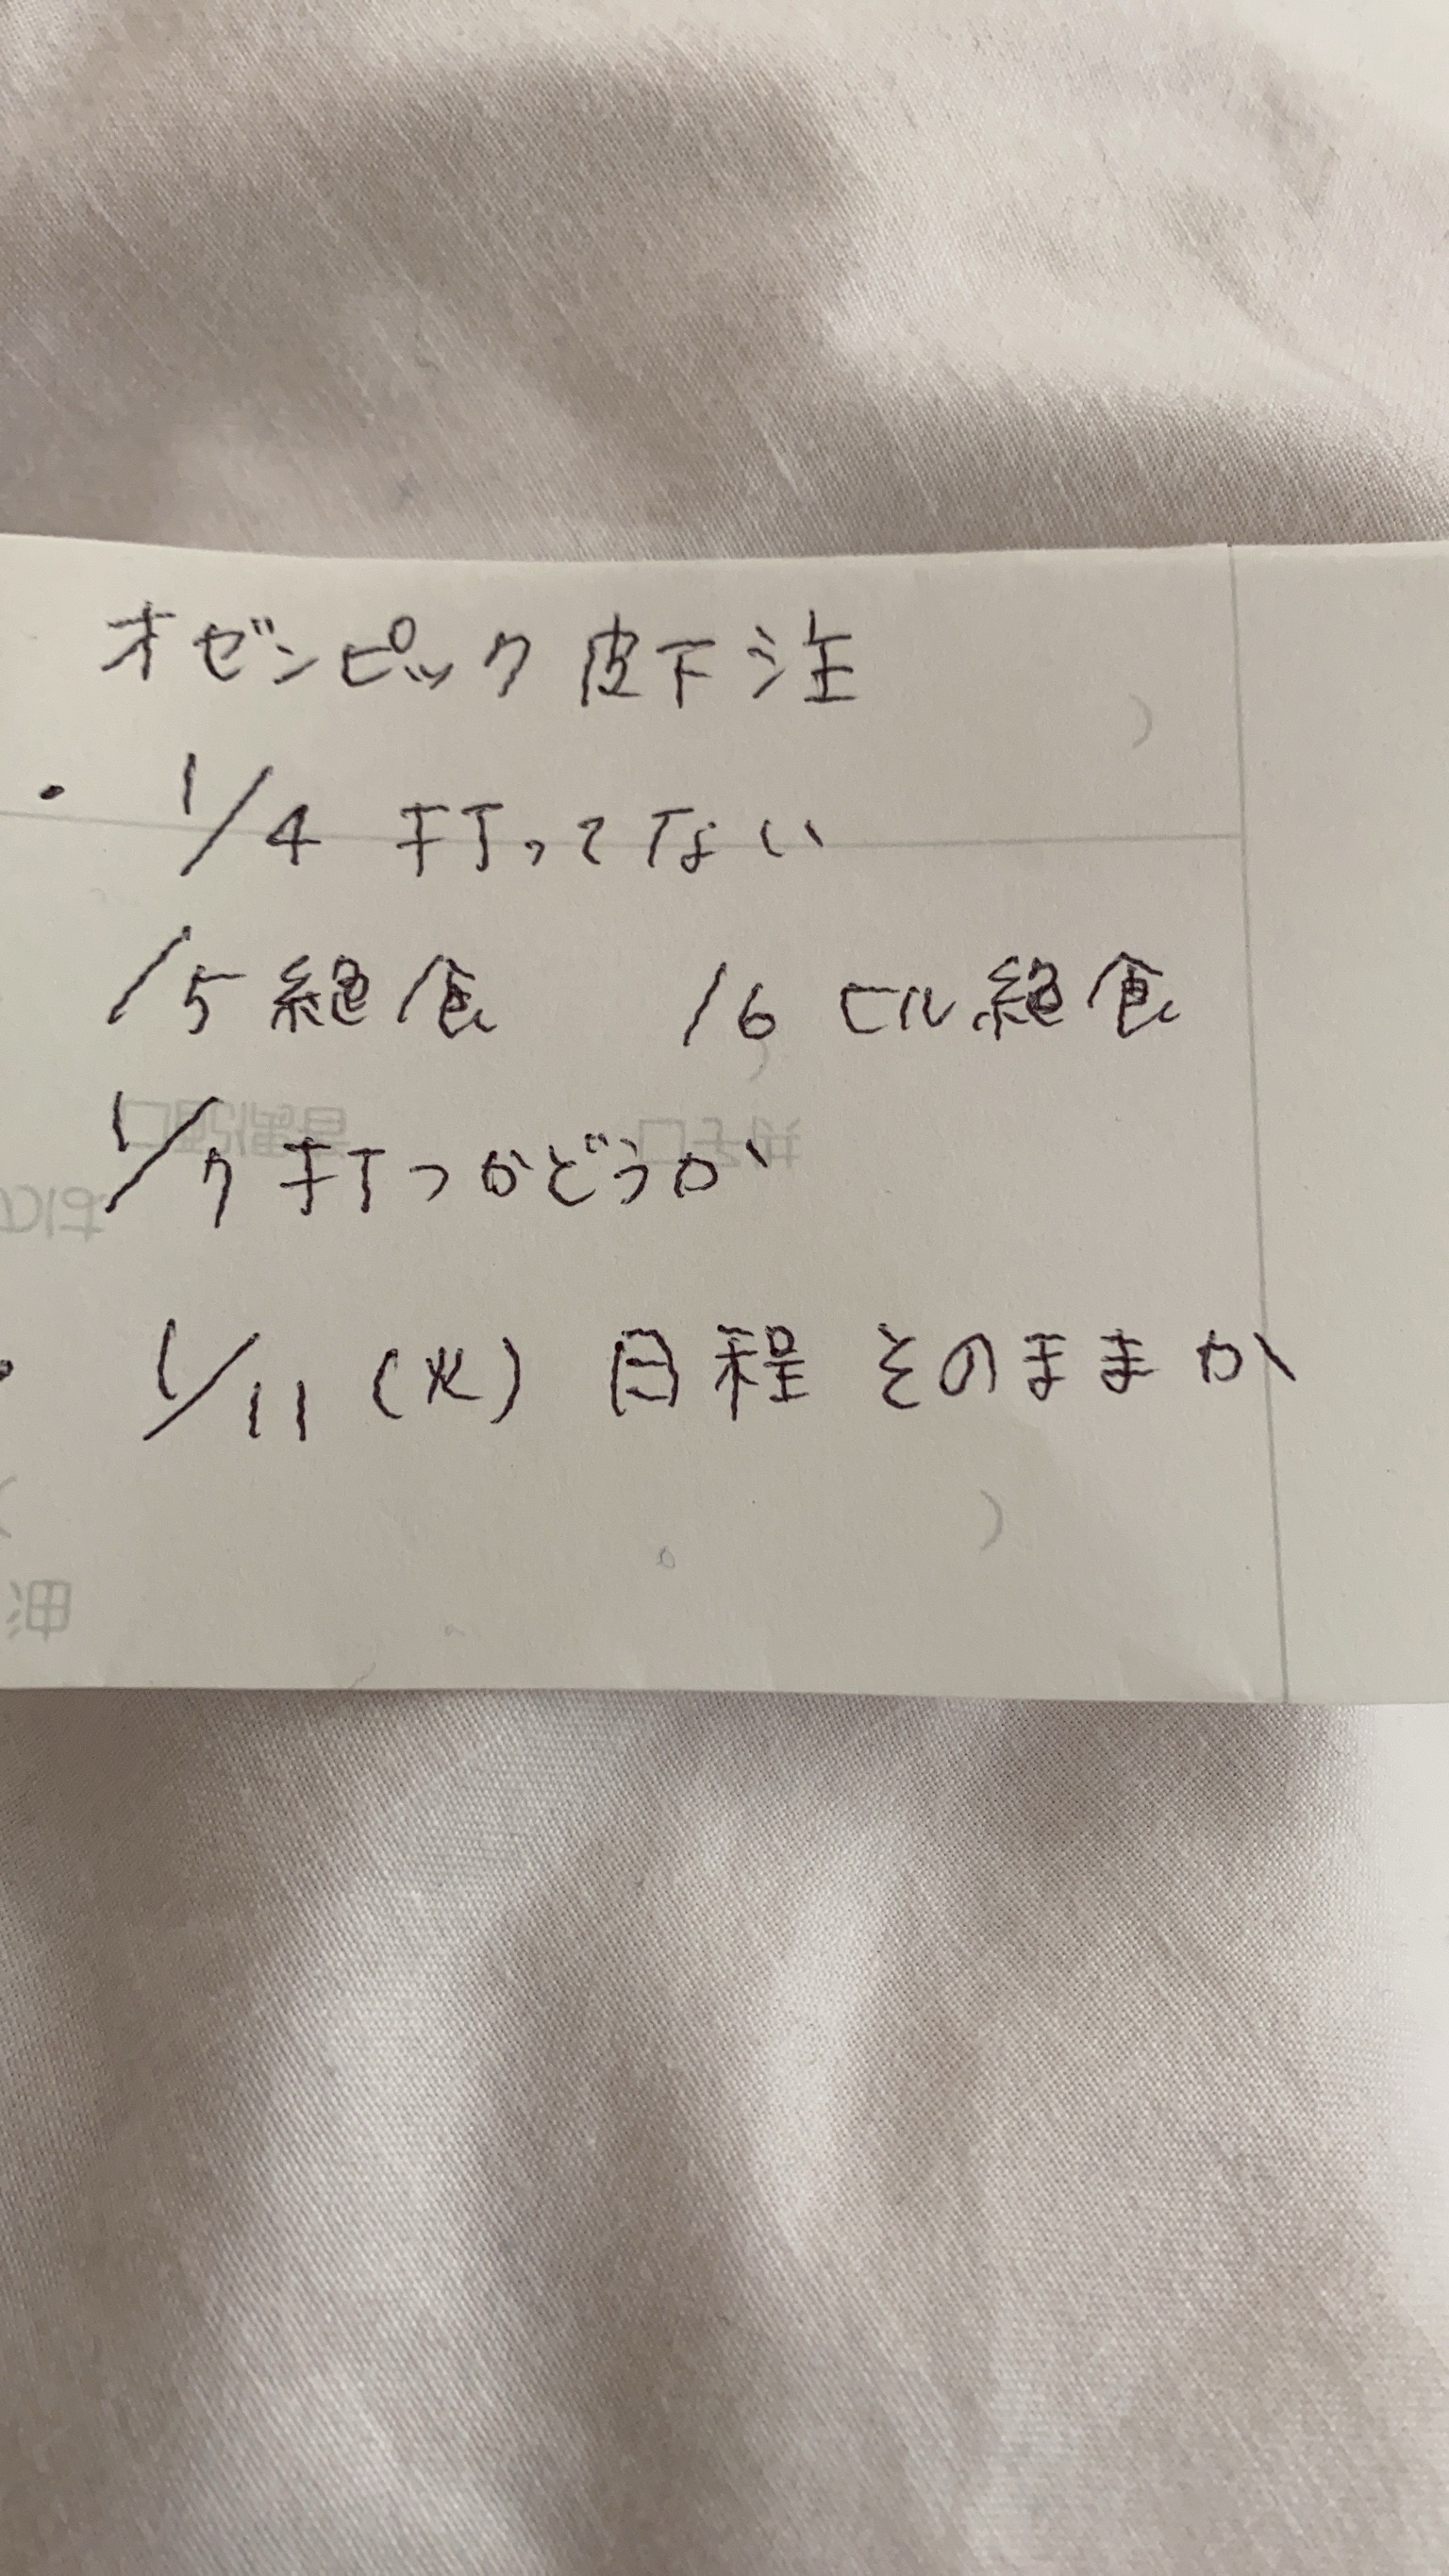 オゼンピック皮下注
・ 1/4 打ってない
/5 絶食 /6 ヒル絶食
1/7 打つかどうか
・ 1/11 (火) 日程 そのままか